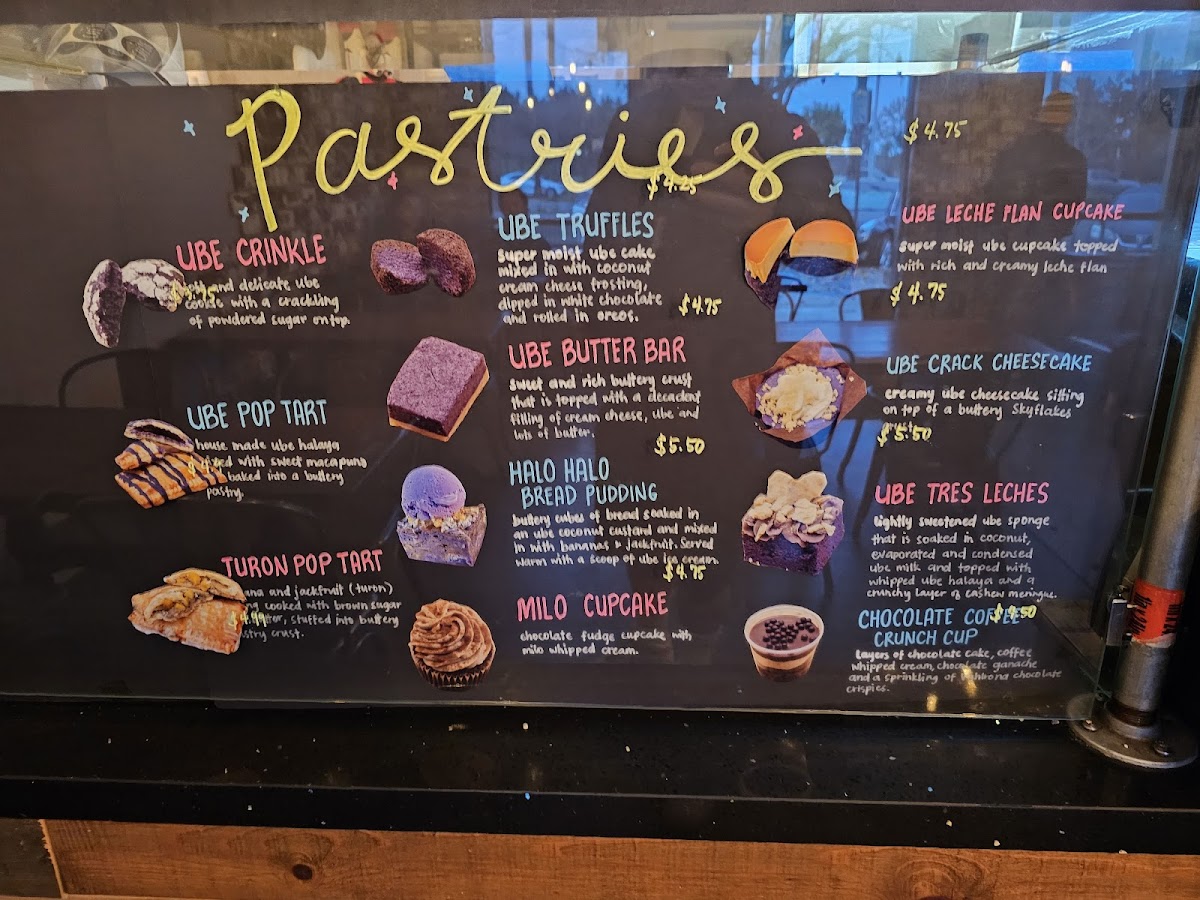 Pastries
UBE CRINKLE
and delicate ube
cookie with a crackling
of powdered sugar on top.
UBE POP TART
house made ube halaya
with sweet macapuno
baked into a buttery
pastry.
TURON POP TART
and jackfruit (turon)
cooked with brown sugar
stuffed into buttery
crust.
$4.25
UBE TRUFFLES
super moist ube cake
mixed in with coconut
cream cheese frosting,
dipped in white chocolate
and rolled in oreos.
$4.75
UBE BUTTER BAR
sweet and rich buttery crust
that is topped with a decadent
filling of cream cheese, ube and
lots of butter.
$5.50
HALO HALO
BREAD PUDDING
buttery cubes of bread soaked in
an ube coconut custard and mixed
in with bananas & jackfruit. Served
warm with a scoop of ube ice cream.
$4.75
MILO CUPCAKE
chocolate fudge cupcake with
milo whipped cream.
$4.75
UBE LECHE FLAN CUPCAKE
super moist ube cupcake topped
with rich and creamy leche flan
$4.75
UBE CRACK CHEESECAKE
creamy ube cheesecake sitting
on top of a buttery Skyflakes
$5.50
UBE TRES LECHES
lightly sweetened ube sponge
that is soaked in coconut,
evaporated and condensed
ube milk and topped with
whipped ube halaya and a
crunchy layer of cashew meringue.
CHOCOLATE COFFEE
CRUNCH CUP
layers of chocolate cake, coffee
whipped cream, chocolate ganache
and a sprinkling of chocolate
crispies.